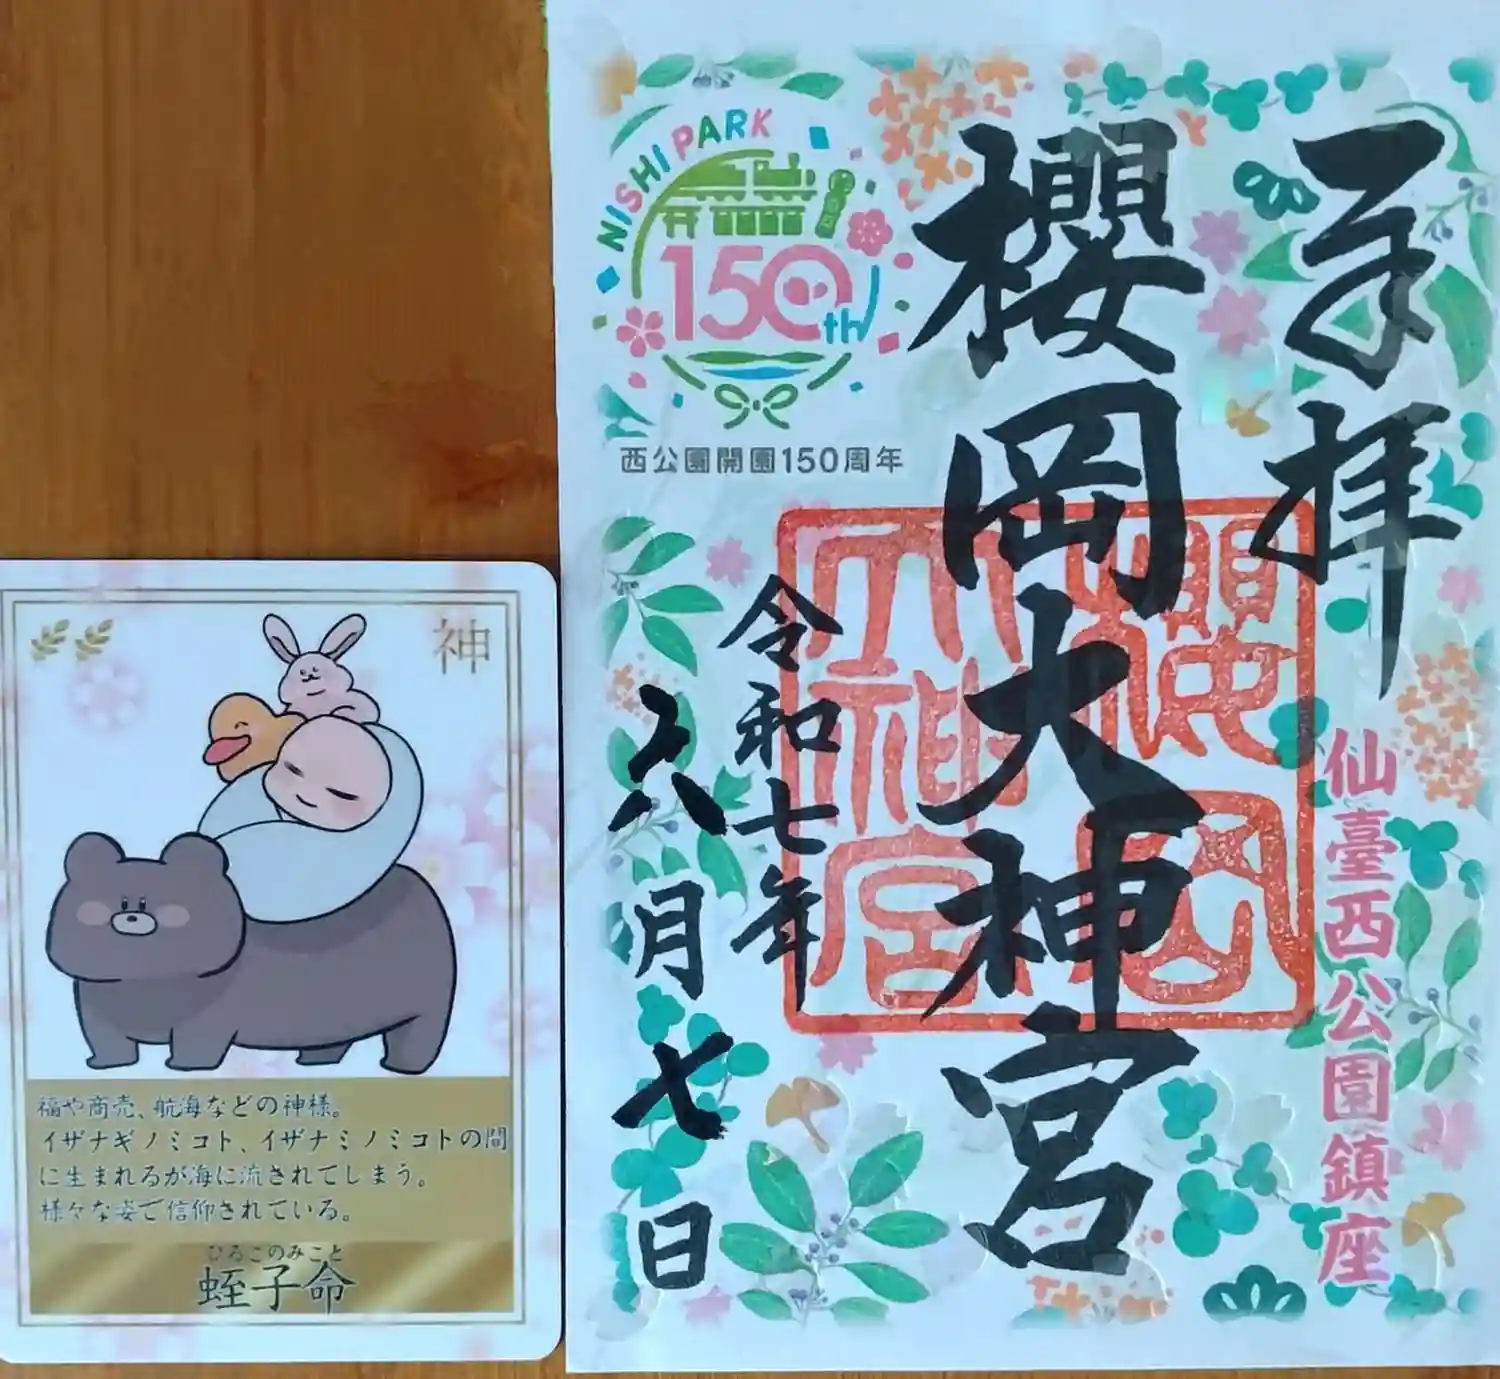 神
福や商売、航海などの神様。
イザナギノミコト、イザナミノミコトの間
に生まれるが海に流されてしまう。
様々な姿で信仰されている。
ひるこのみこと
蛭子命
奉拝
櫻岡大神宮
仙臺西公園鎮座
令和七年
六月七日
NISHI PARK
150th
西公園開園150周年
櫻岡
大神宮